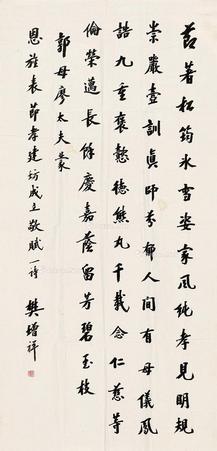 著松筠冰雪姿家風純孝見明規
崇嚴壼訓真師芬郁人間有母儀鳳
誥九重褒懿德熊丸千載念仁慈等
倫榮邁長餘慶嘉蔭留芳碧玉枝
郭母廖太夫蒙
恩旌表節孝建坊成立敬賦一詩
樊增祥